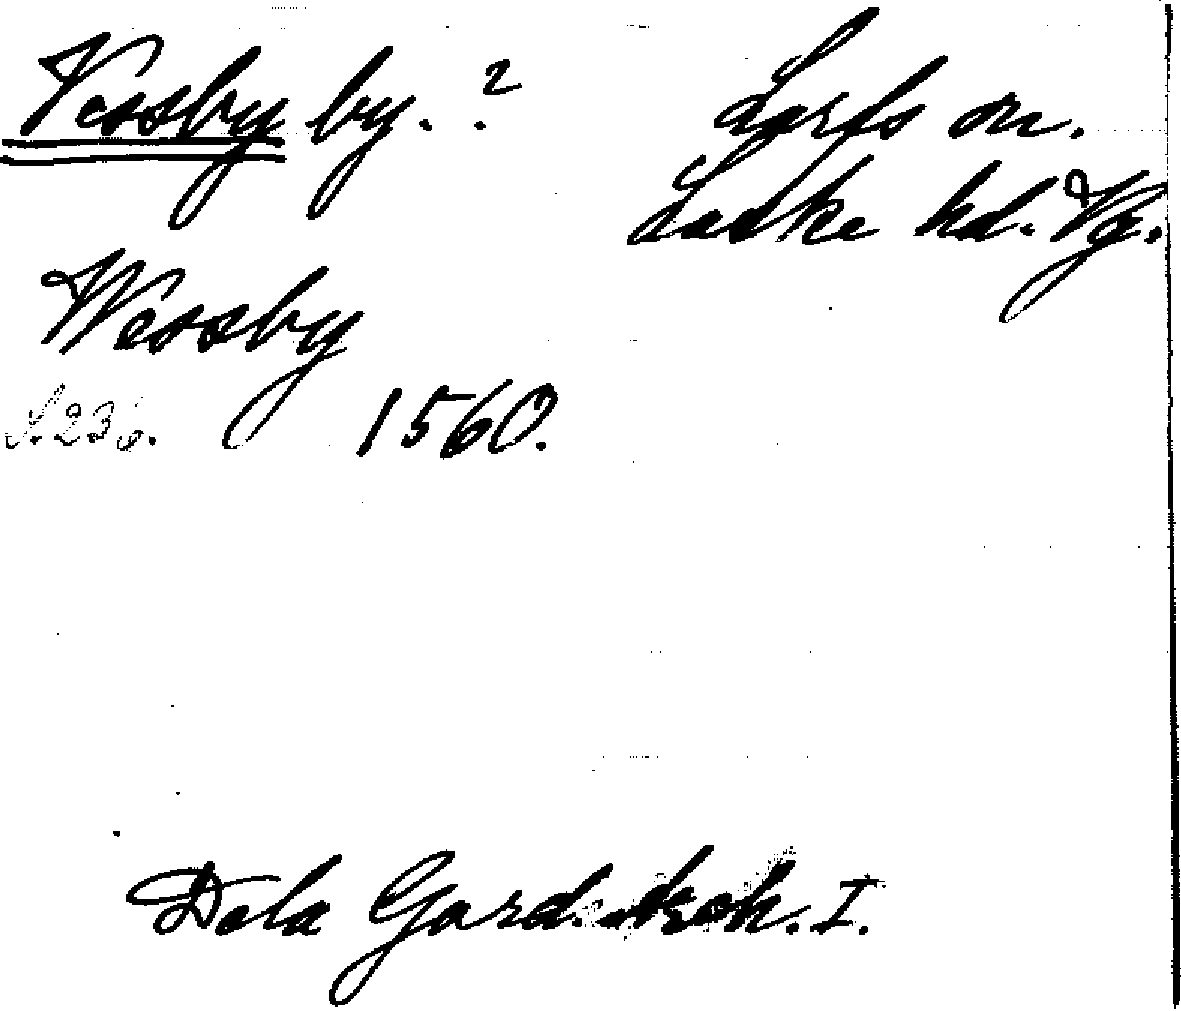 Vessby by. ? Larfs sn.
Laske hd. Vg.
Wessby
S. 236. 1560.
Dela Gard. Arch. I.